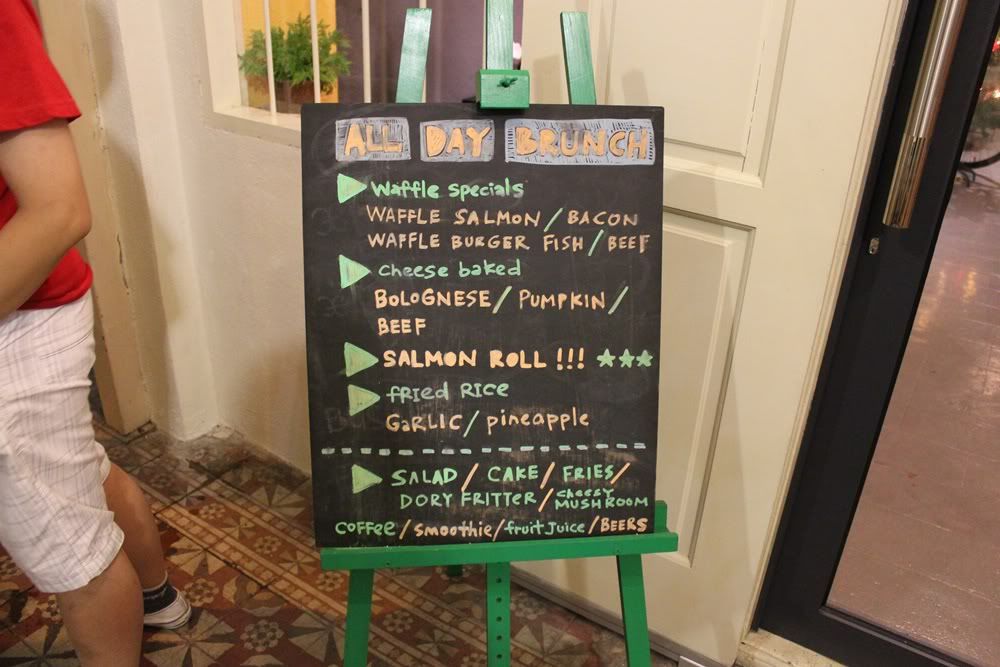 ALL DAY BRUNCH
Waffle specials
WAFFLE SALMON / BACON
WAFFLE BURGER FISH / BEEF
cheese baked
BOLOGNESE / PUMPKIN /
BEEF
SALMON ROLL !!! ★★★
fRied RICE
GaRLIC / pineapple
SALAD / CAKE / FRIES /
DORY FRITTER / cheesy MUSHROOM
COFFEE / smoothie / fruit Juice / BEERS